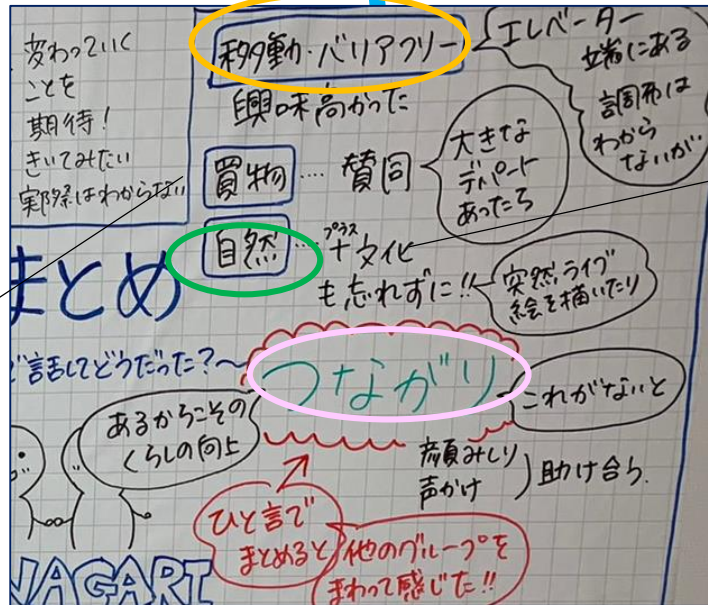 変わっていく
ことを
期待!
きいてみたい
実際はわからない
移動・バリアフリー
興味高かった
エレベーター
端にある
調布は
わから
ないが
買物 … 賛同
大きな
デパート
あったら
自然 … プラス + 文化
も忘れずに!!
突然ライブ
絵を描いたり
まとめ
で話してどうだった?〜
つながり
これがないと
あるからこその
くらしの向上
顔みしり
声かけ
助け合う
ひと言で
まとめると
他のグループを
まわって感じた!!
NAGARI